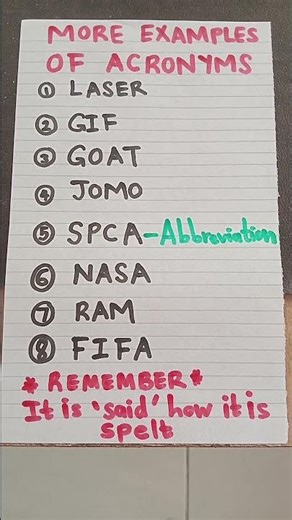 MORE EXAMPLES
OF ACRONYMS
① LASER
② GIF
③ GOAT
④ JOMO
⑤ SPCA - Abbreviation
⑥ NASA
⑦ RAM
⑧ FIFA
* REMEMBER *
It is 'said' how it is
spelt